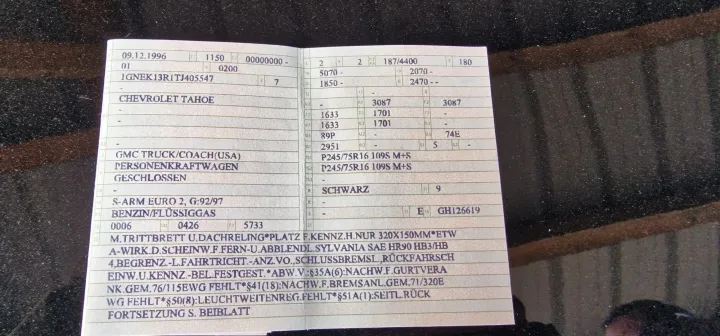 09.12.1996 1150 00000000 -
01 0200
1GNEK13R1TJ405547 7
-
CHEVROLET TAHOE
-
-
-
GMC TRUCK/COACH(USA)
PERSONENKRAFTWAGEN
GESCHLOSSEN
-
S-ARM EURO 2, G:92/97
BENZIN/FLÜSSIGGAS
0006 0426 5733
2 2 187/4400 180
5070 - 2070 -
1850 - 2470 - -
-
- 3087 3087
1633 1701 -
1633 1701 -
89P - 74E
2951 - 5 -
P245/75R16 109S M+S
P245/75R16 109S M+S
-
SCHWARZ 9
-
- E GH126619
M.TRITTBRETT U.DACHRELING*PLATZ F.KENNZ.H.NUR 320X150MM*ETW
A-WIRK.D.SCHEINW.F.FERN-U.ABBLENDL SYLVANIA SAE HR90 HB3/HB
4,BEGRENZ.-L.FAHRTRICHT.-ANZ.VO.,SCHLUSSBREMSL.,RÜCKFAHRSCH
EINW.U.KENNZ.-BEL.FESTGEST.*ABW.V.:§35A(6):NACHW.F.GURTVERA
NK.GEM.76/115EWG FEHLT*§41(18):NACHW.F.BREMSANL.GEM.71/320E
WG FEHLT*§50(8):LEUCHTWEITENREG.FEHLT*§51A(1):SEITL.RÜCK
FORTSETZUNG S. BEIBLATT